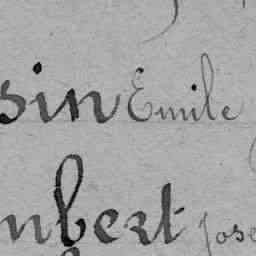 sin Emile
mbert Jose